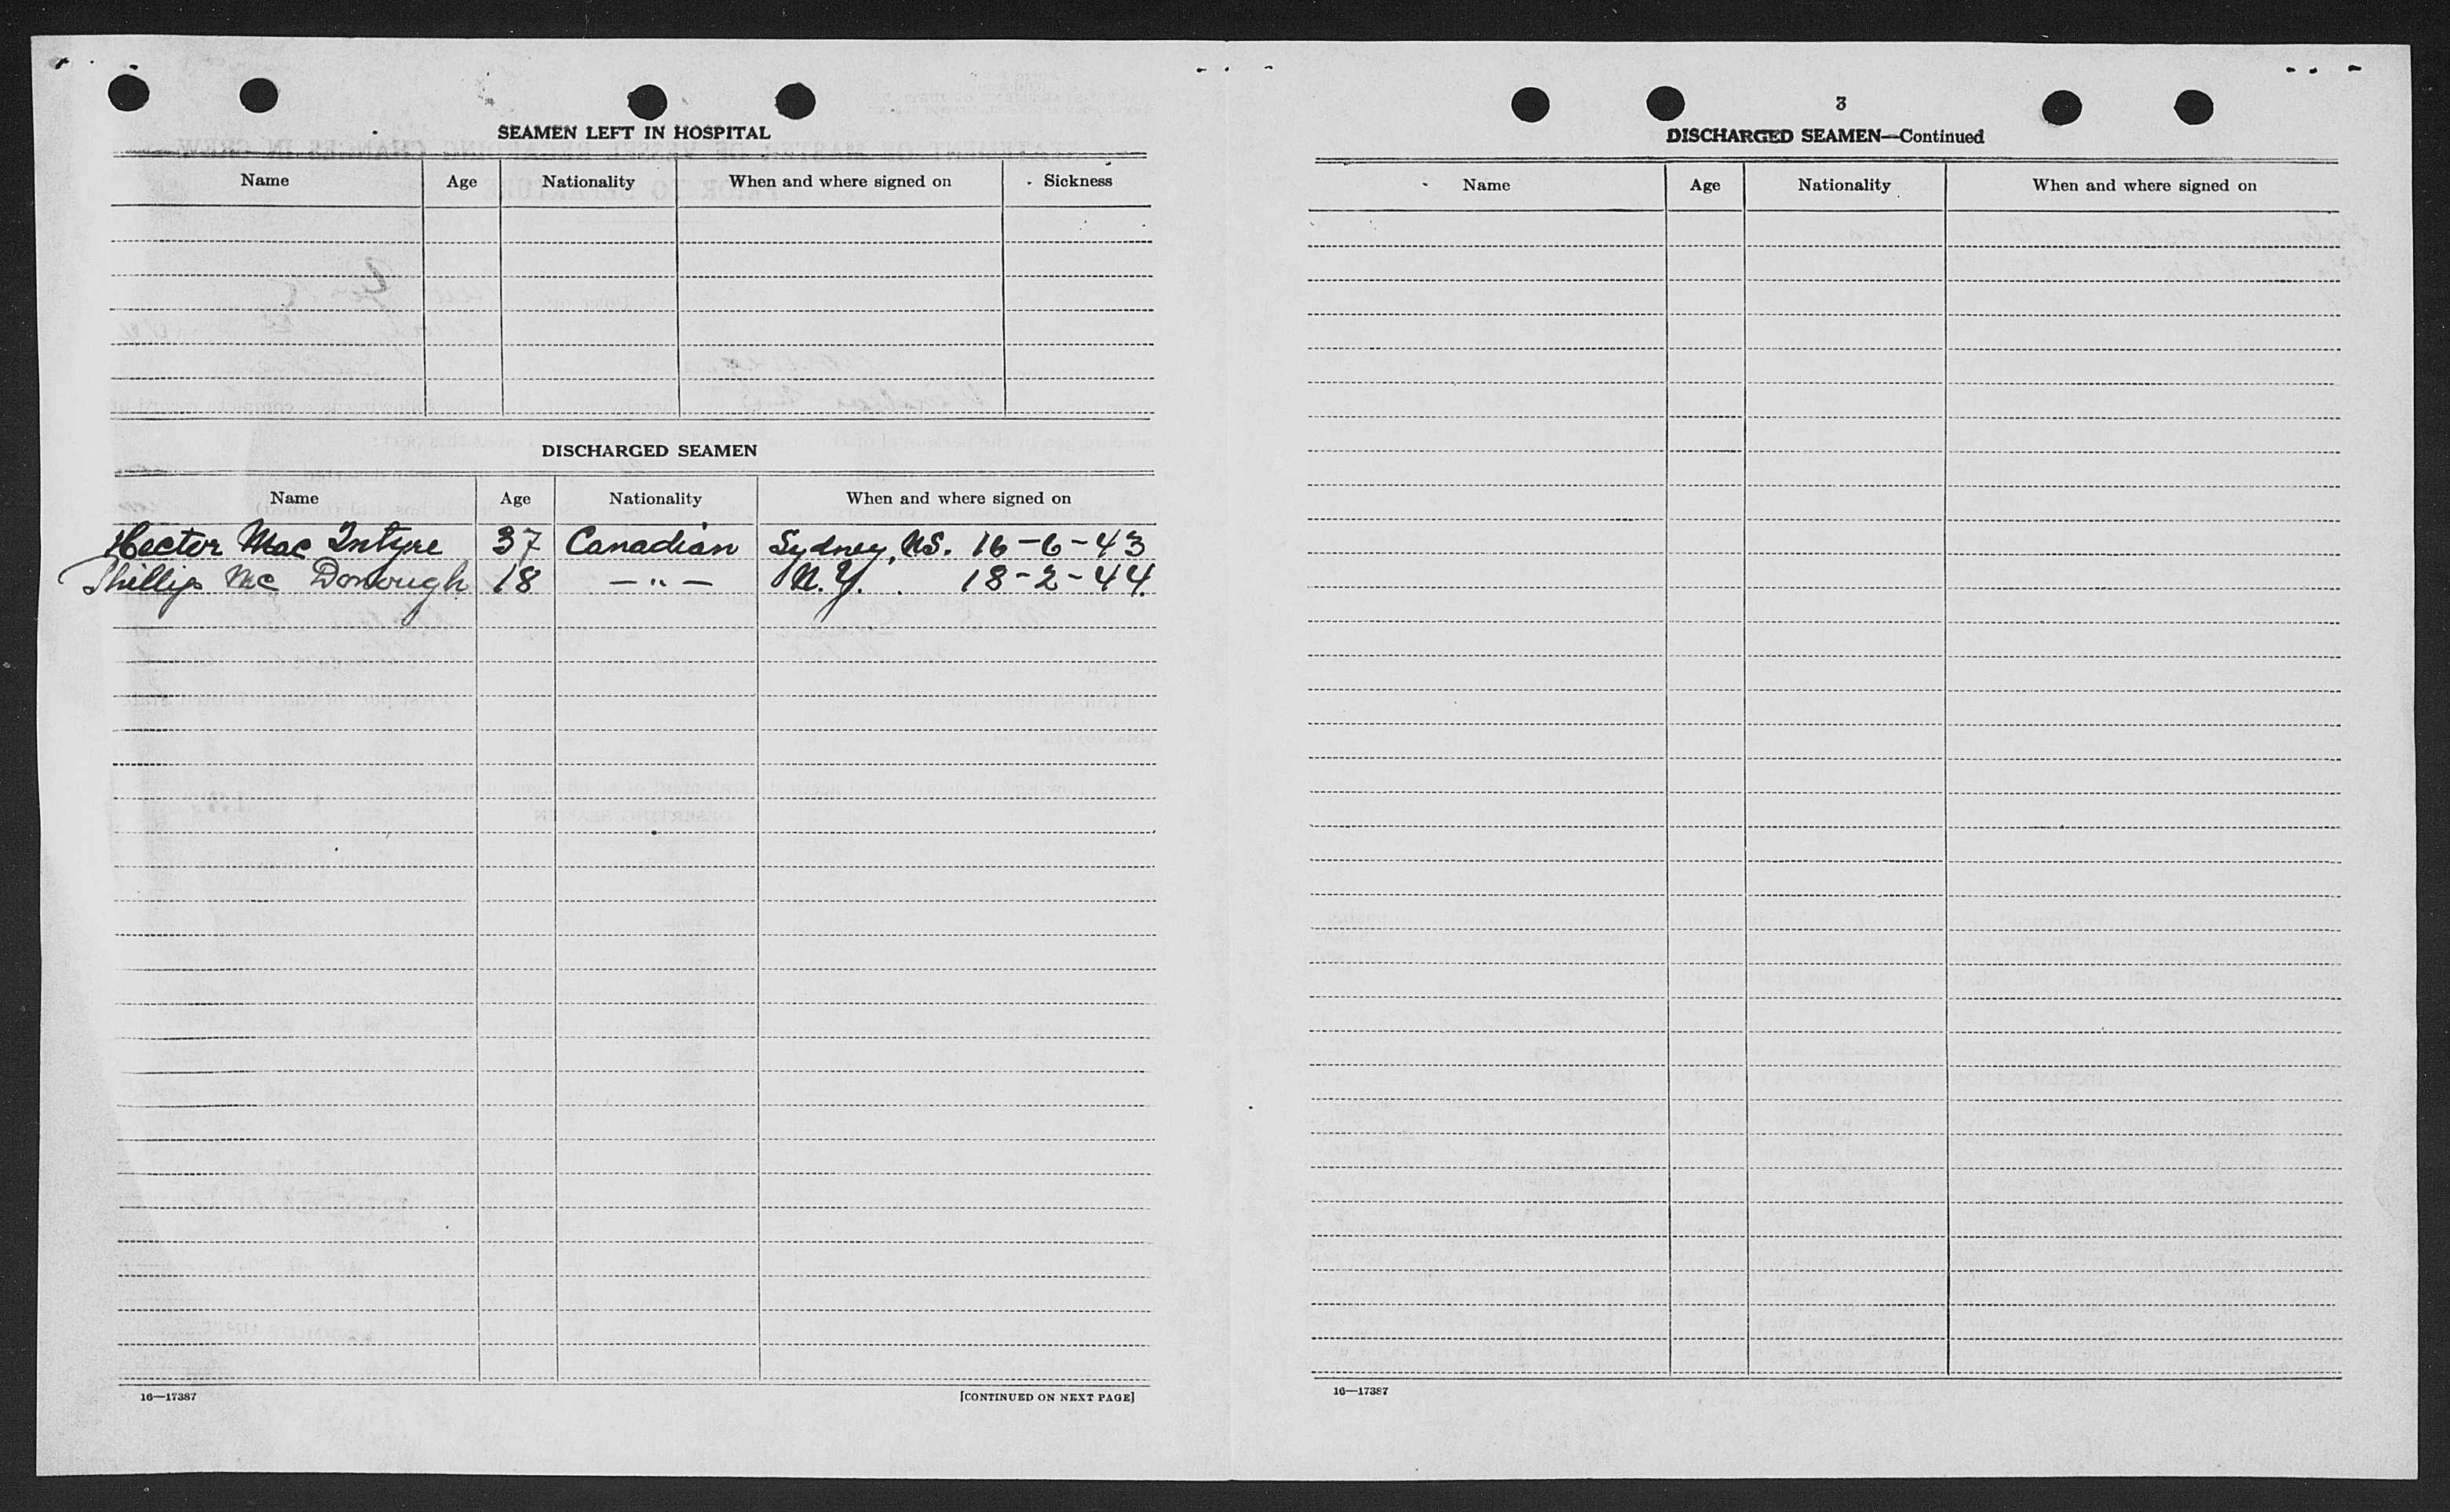 SEAMEN LEFT IN HOSPITAL
Name Age Nationality When and where signed on Sickness
DISCHARGED SEAMEN
Name Age Nationality When and where signed on
Hector Mac Intyre 37 Canadian Sydney, NS. 16-6-43
Phillip Mc Donough 18 — " — N.Y. 18-2-44.
16—17387 [CONTINUED ON NEXT PAGE]
3
DISCHARGED SEAMEN—Continued
Name Age Nationality When and where signed on
16—17387